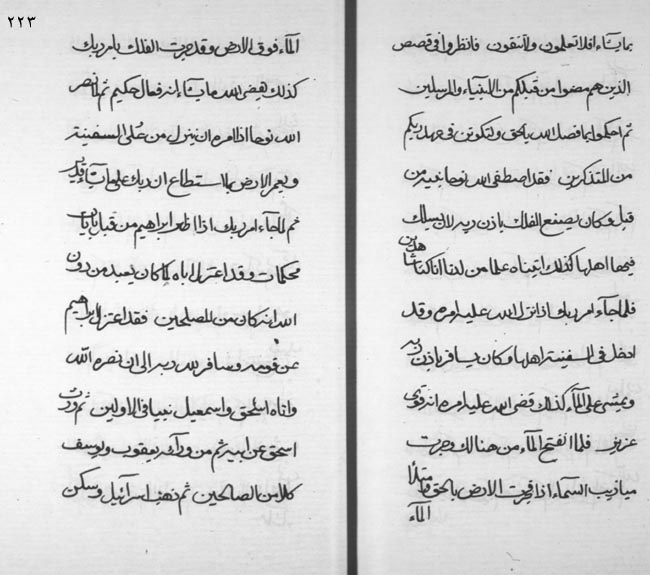 ٢٢٣
بما يشاء افلا تعلمون ولا تتقون فانظروا في قصص
الذين هم مضوا من قبلكم من الانبياء والمرسلين
ثم احكموا بما فصل الله بالحق ولتكونن في عهد ربكم
من المتذكرين فقد اصطفى الله نوحا نبيه من
قبل وكان يصنع الفلك باذن ربه لان يسلك
فيها اهلها كذلك اتيناه علما من لدنا انا كنا شاهدين
فلما جاء امر ربك اذ انزل الله عليه امره وقد
ادخل في السفينة اهلها وكان يسافر باذن ربه
ويمشي على المآء كذلك قضى الله عليه امره انه قوي
عزيز فلما انفتح المآء من هنالك وجرت
ميازيب السماء اذا فجرت الارض بالحق وامتلأ
المآء
المآء فوق الارض وقد جرت الفلك بامر ربك
كذلك يقضي الله ما يشاء انه فعال حكيم ثم لما نصر
الله نوحا اذا امره ان ينزل من على السفينة
ويعمر الارض بما استطاع ان ربك على ما يشآء قدير
ثم لما جآء امر ربك اذا اظهر ابراهيم من قبل بايات
محكمات وقد اعتزل اباه لما كان يعبد من دون
الله انه كان من المصلحين فقد اعتزل ابراهيم
عن قومه وسافر لله ربه الى ان نصره الله
واتاه اسحق واسمعيل نبيا في الاولين ثم ورث
اسحق عن ابيه ثم من ورآئه يعقوب ويوسف
كلا من الصالحين ثم ذهب اسرآئيل وسكن